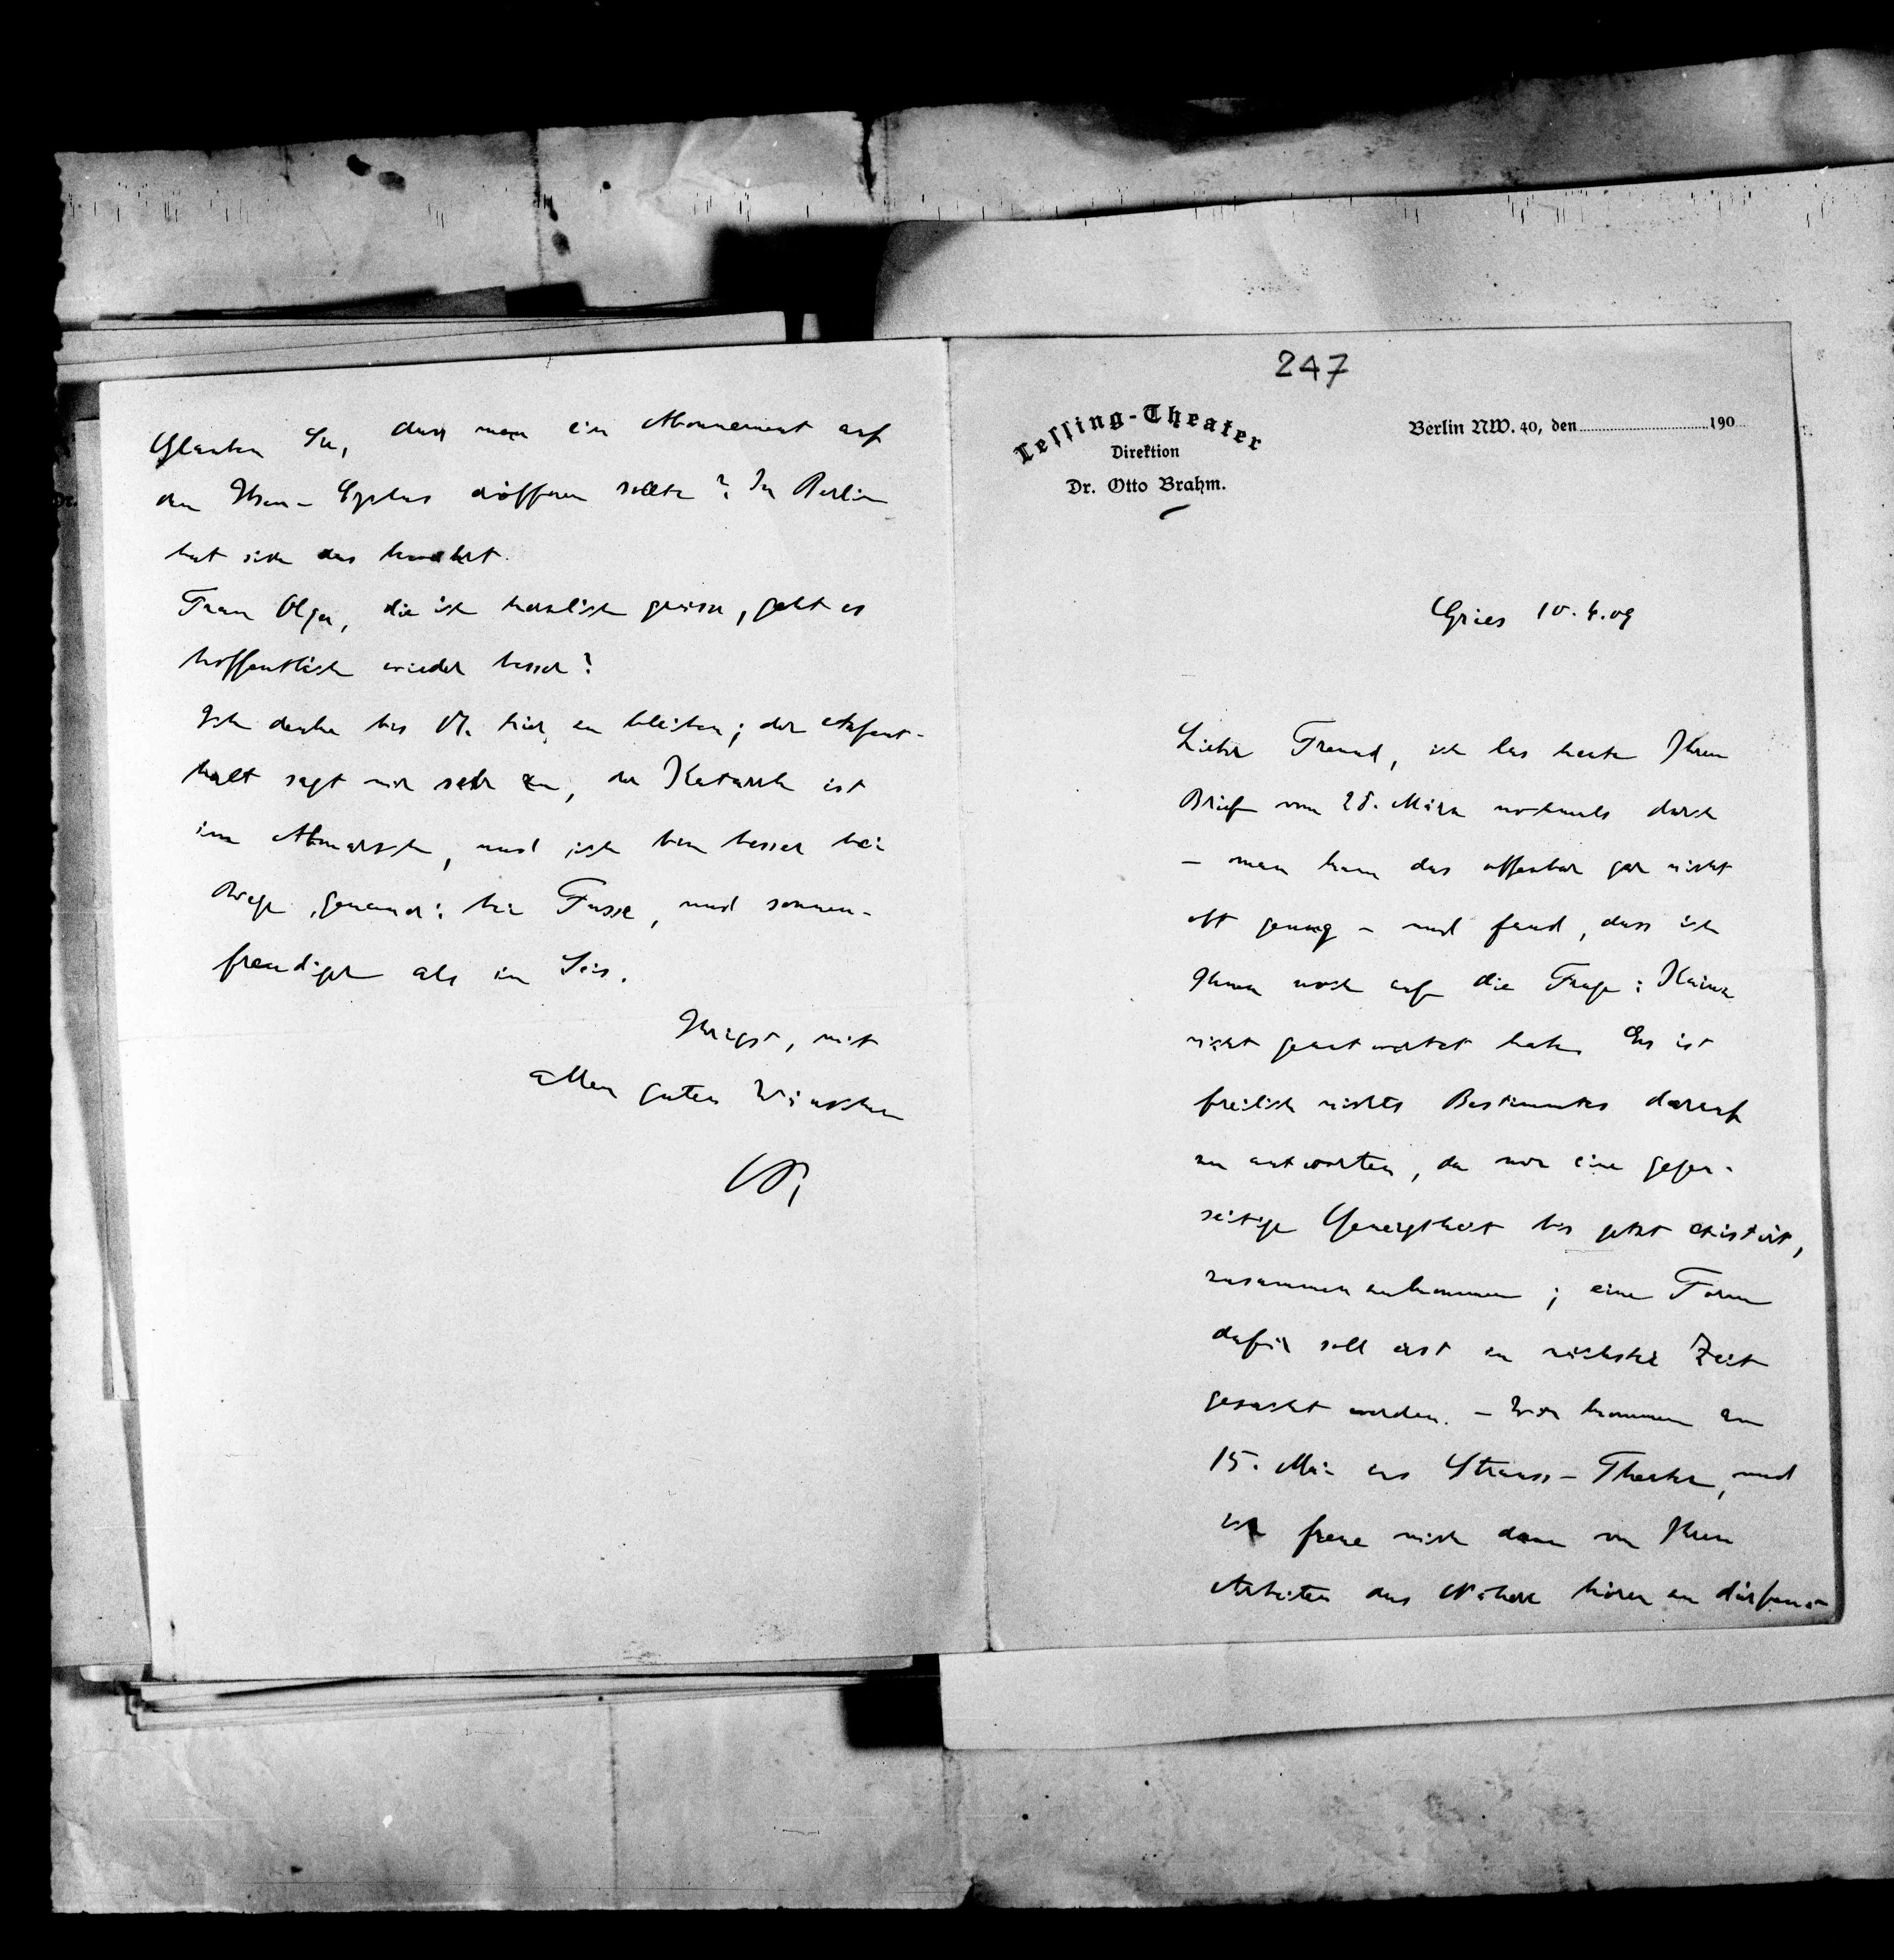 247
Lessing-Theater
Direktion
Dr. Otto Brahm.
Berlin NW. 40, den 190
Gries 10.4.09
Lieber Freund, ich las heute Ihren
Brief vom 28. März nochmals durch
– man kann das offenbar gar nicht
oft genug – und fand, dass ich
Ihnen noch auf die Frage: Kainz
nicht geantwortet habe. Es ist
freilich nichts Bestimmtes darauf
zu antworten, da nur eine gegen-
seitige Geneigtheit bis jetzt existirt,
zusammenzukommen; eine Form
dafür soll erst in nächster Zeit
gesucht werden. – Wir kommen am
15. Mai ins Strauss-Theater, und
ich freue mich dann von Ihren
Arbeiten das Nähere hören zu dürfen. –
Glauben Sie, dass man ein Abonnement auf
den Ibsen-Cyclus eröffnen sollte? In Berlin
hat sich das bewährt.
Frau Olga, die ich herzlich grüsse, geht es
hoffentlich wieder besser?
Ich denke bis 17. hier zu bleiben; der Aufent-
halt sagt mir sehr zu, der Katarrh ist
im Abmarsch, und ich bin besser bei
Wege, genauer: bei Fusse, und sonnen-
freudiger als in Seis.
Ihrigst, mit
allen guten Wünschen